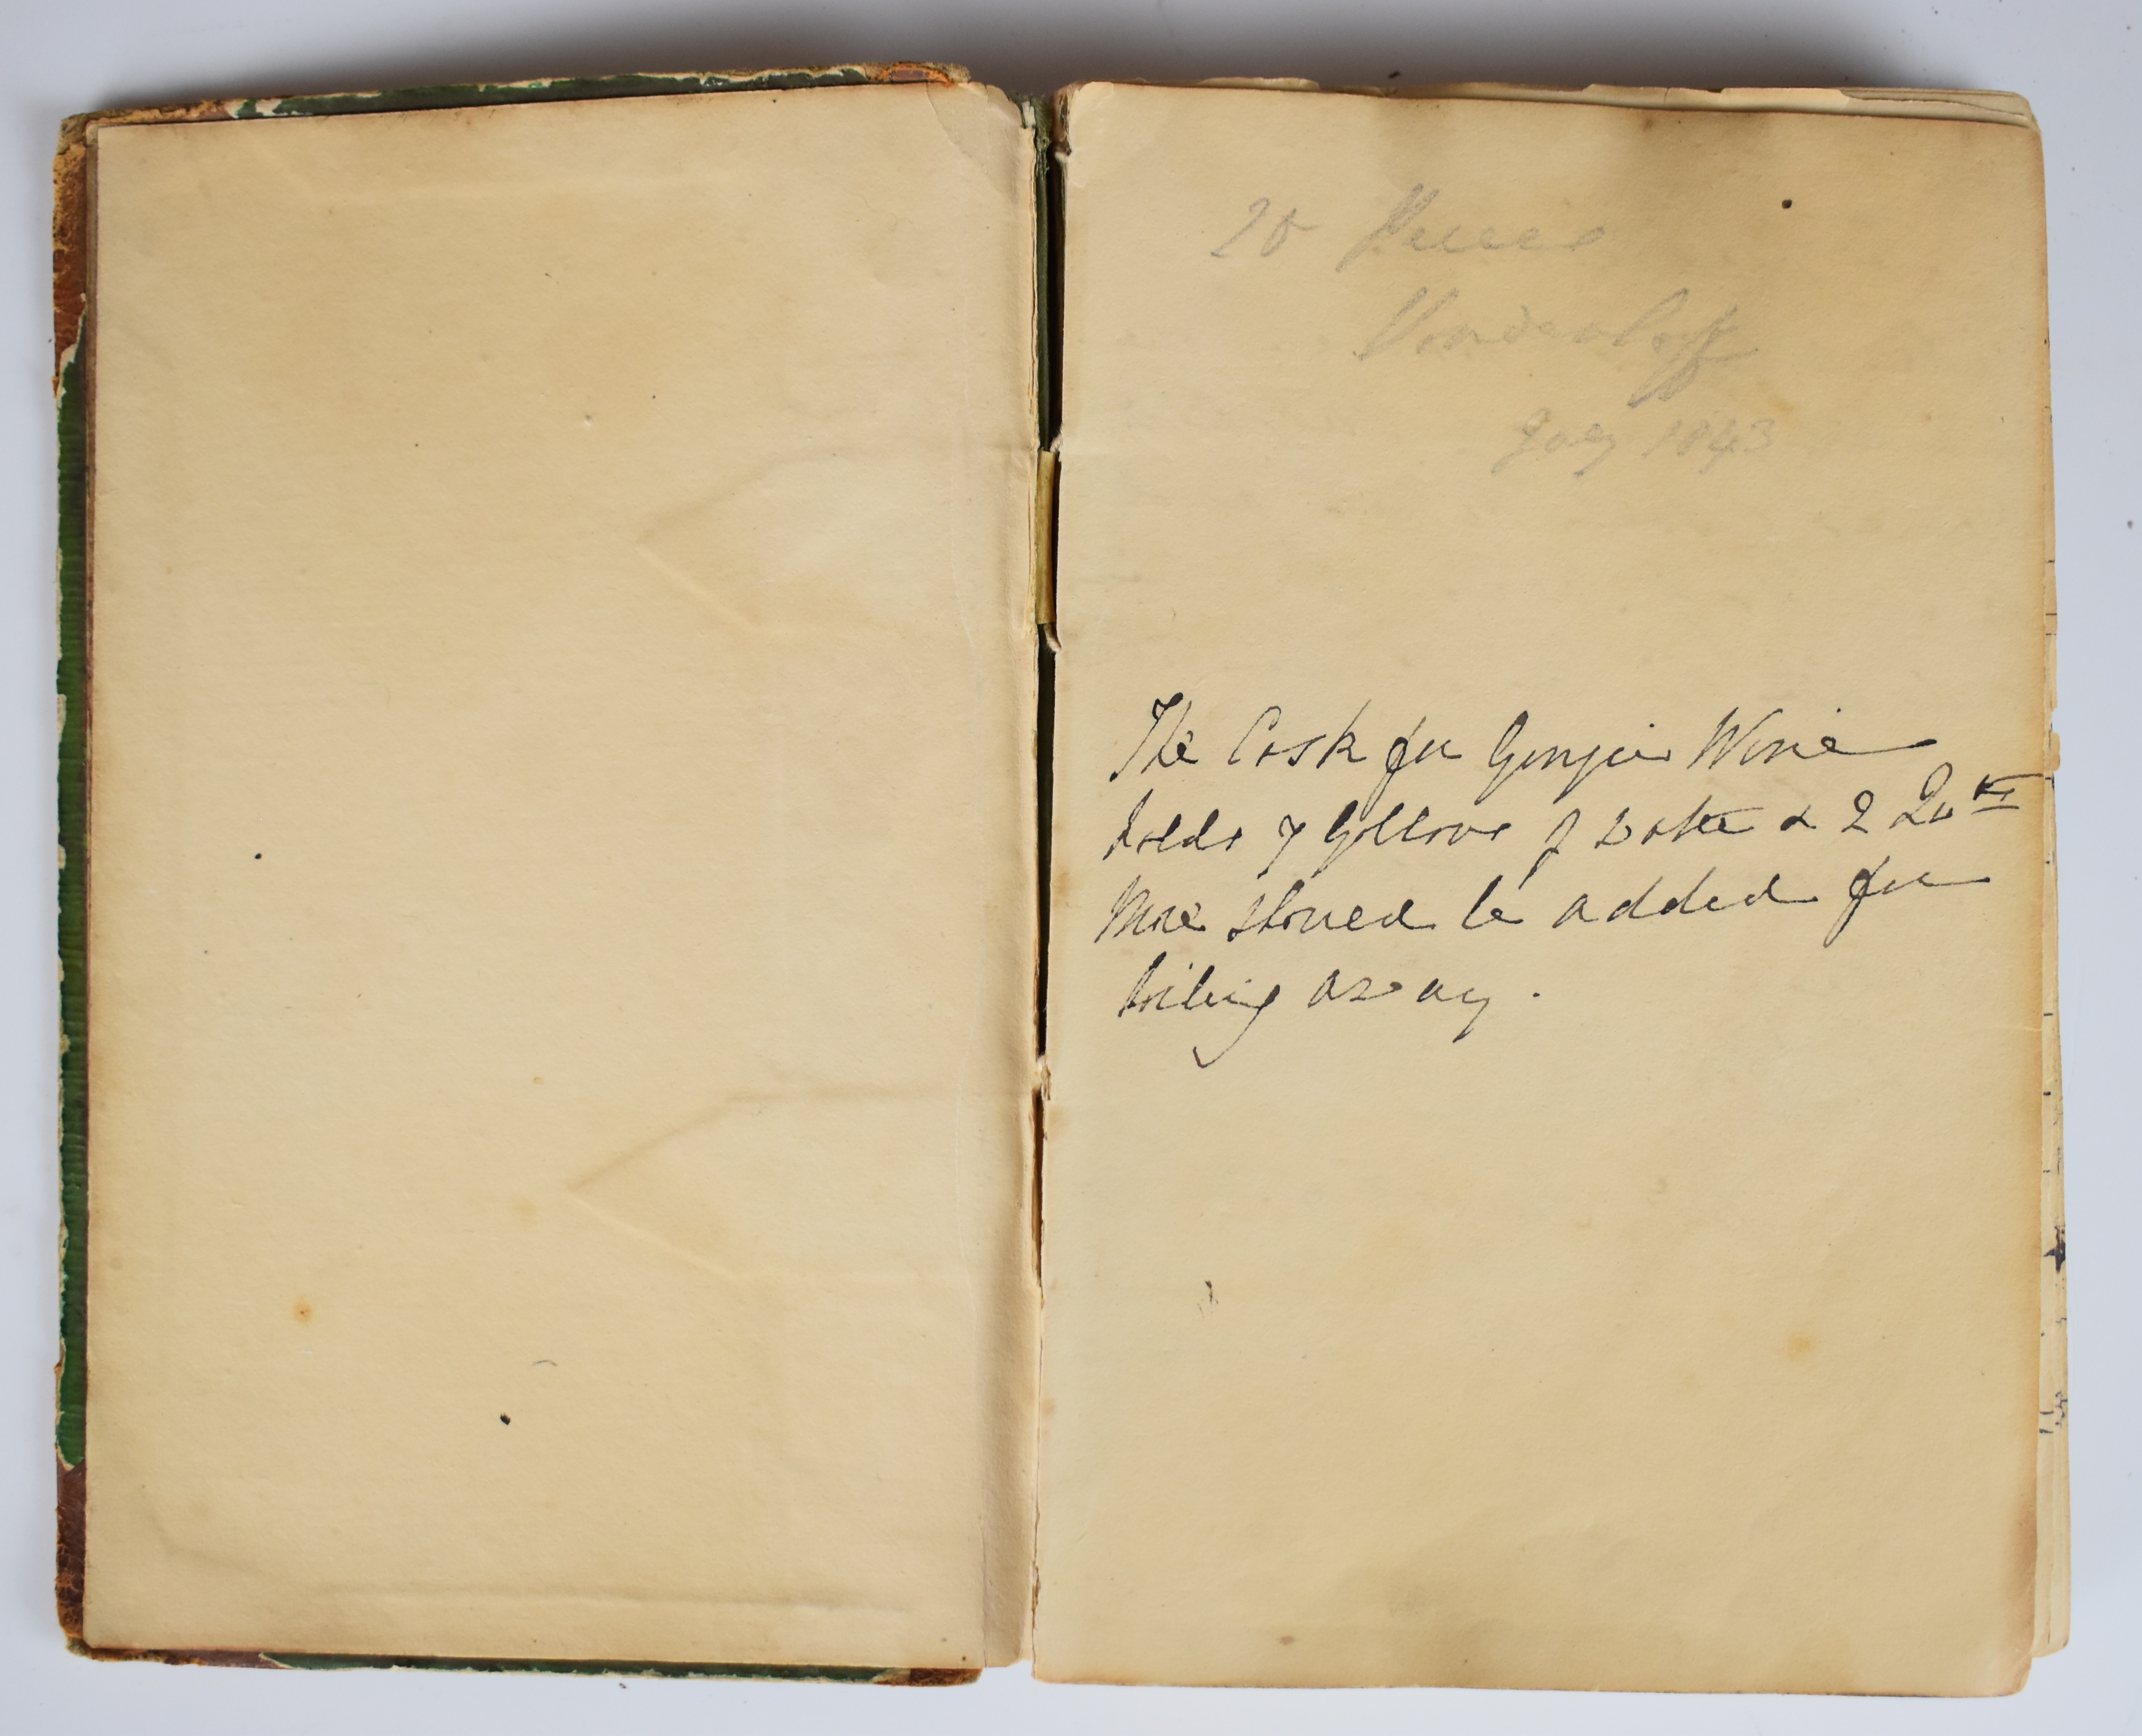 20
July 1843
The Cask for Ginger Wine
holds 7 Gallons of Water & 2 Qu<sup>rts</sup>
More should be added for
boiling away.